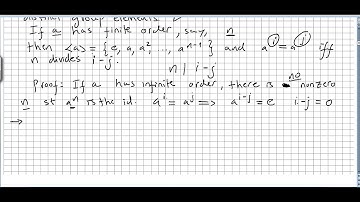 distinct group elements
If a has finite order, say, n
then <a> = {e, a, a², ..., a^{n-1}} and a^i = a^j iff
n divides i-j.
n | i-j
Proof: If a has infinite order, there is no nonzero
n st a^n is the id. a^i = a^j => a^{i-j} = e i-j = 0
→